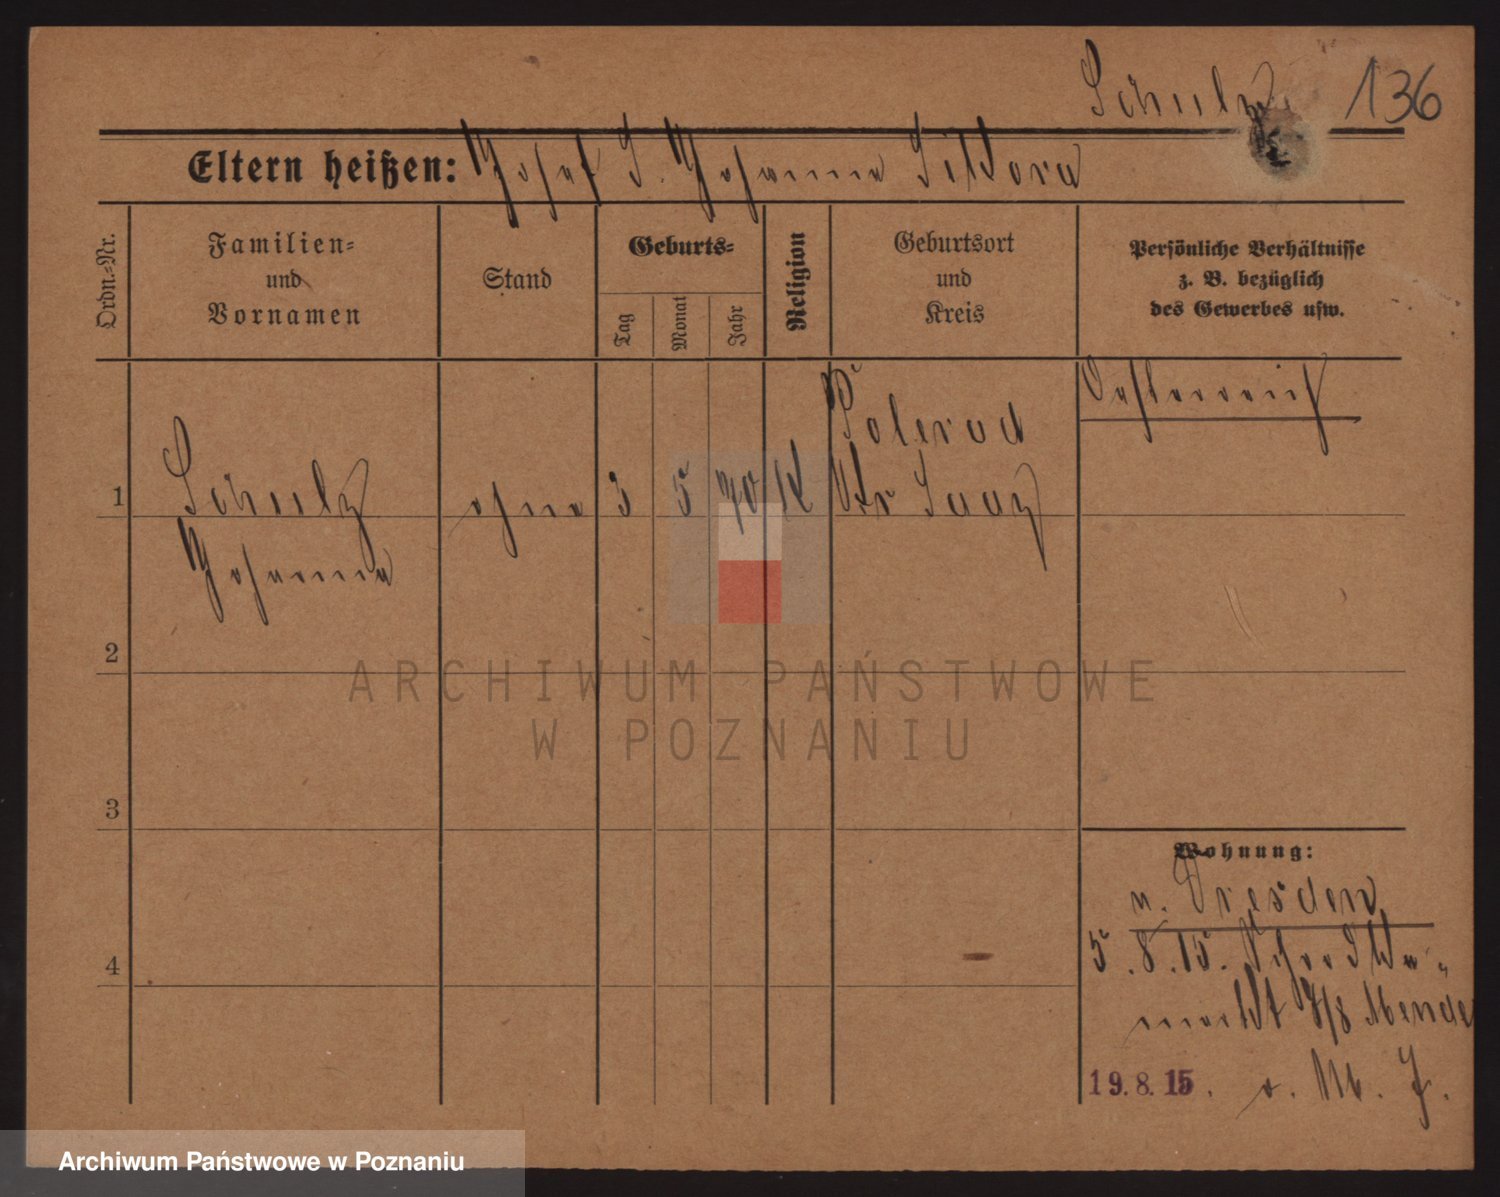 Schulz 136
Eltern heißen: Josef S. Johanna Sikora
Ordn.-Nr.
Familien-
und
Vornamen
Stand
Geburts-
Tag
Monat
Jahr
Religion
Geburtsort
und
Kreis
Persönliche Verhältnisse
z. B. bezüglich
des Gewerbes usw.
Oesterreich
Polerad
1 Schulz ohne 3 5 90 K Kr Saaz
Johanna
2
ARCHIWUM PAŃSTWOWE
W POZNANIU
3
Wohnung:
n. Dresden
5.8.15.
markt 7/8 Mende
4
19.8.15. v. M. J.
Archiwum Państwowe w Poznaniu